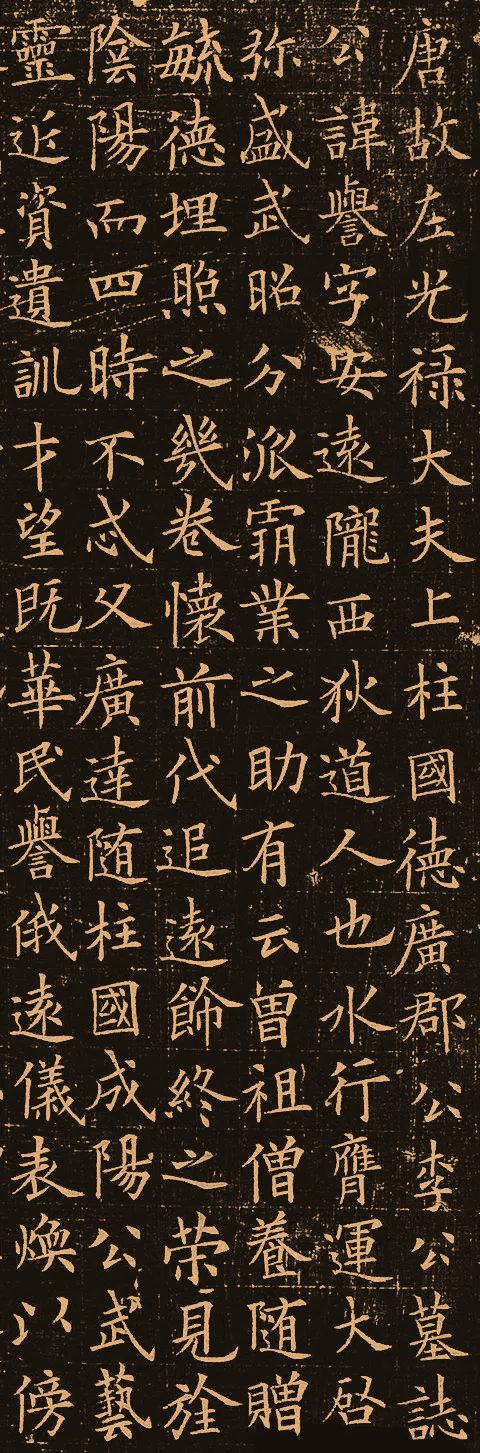 唐故左光禄大夫上柱國德廣郡公李公墓誌
公諱譽字安遠隴西狄道人也水行膺運大啓
弥盛武昭分派霸業之助有云曾祖僧養随贈
毓德埋照之幾卷懷前代追遠飾終之荣見於
陰陽而四時不忒父廣達随柱國成陽公武藝
靈近資遺訓才望既華民譽俄遠儀表煥以傍